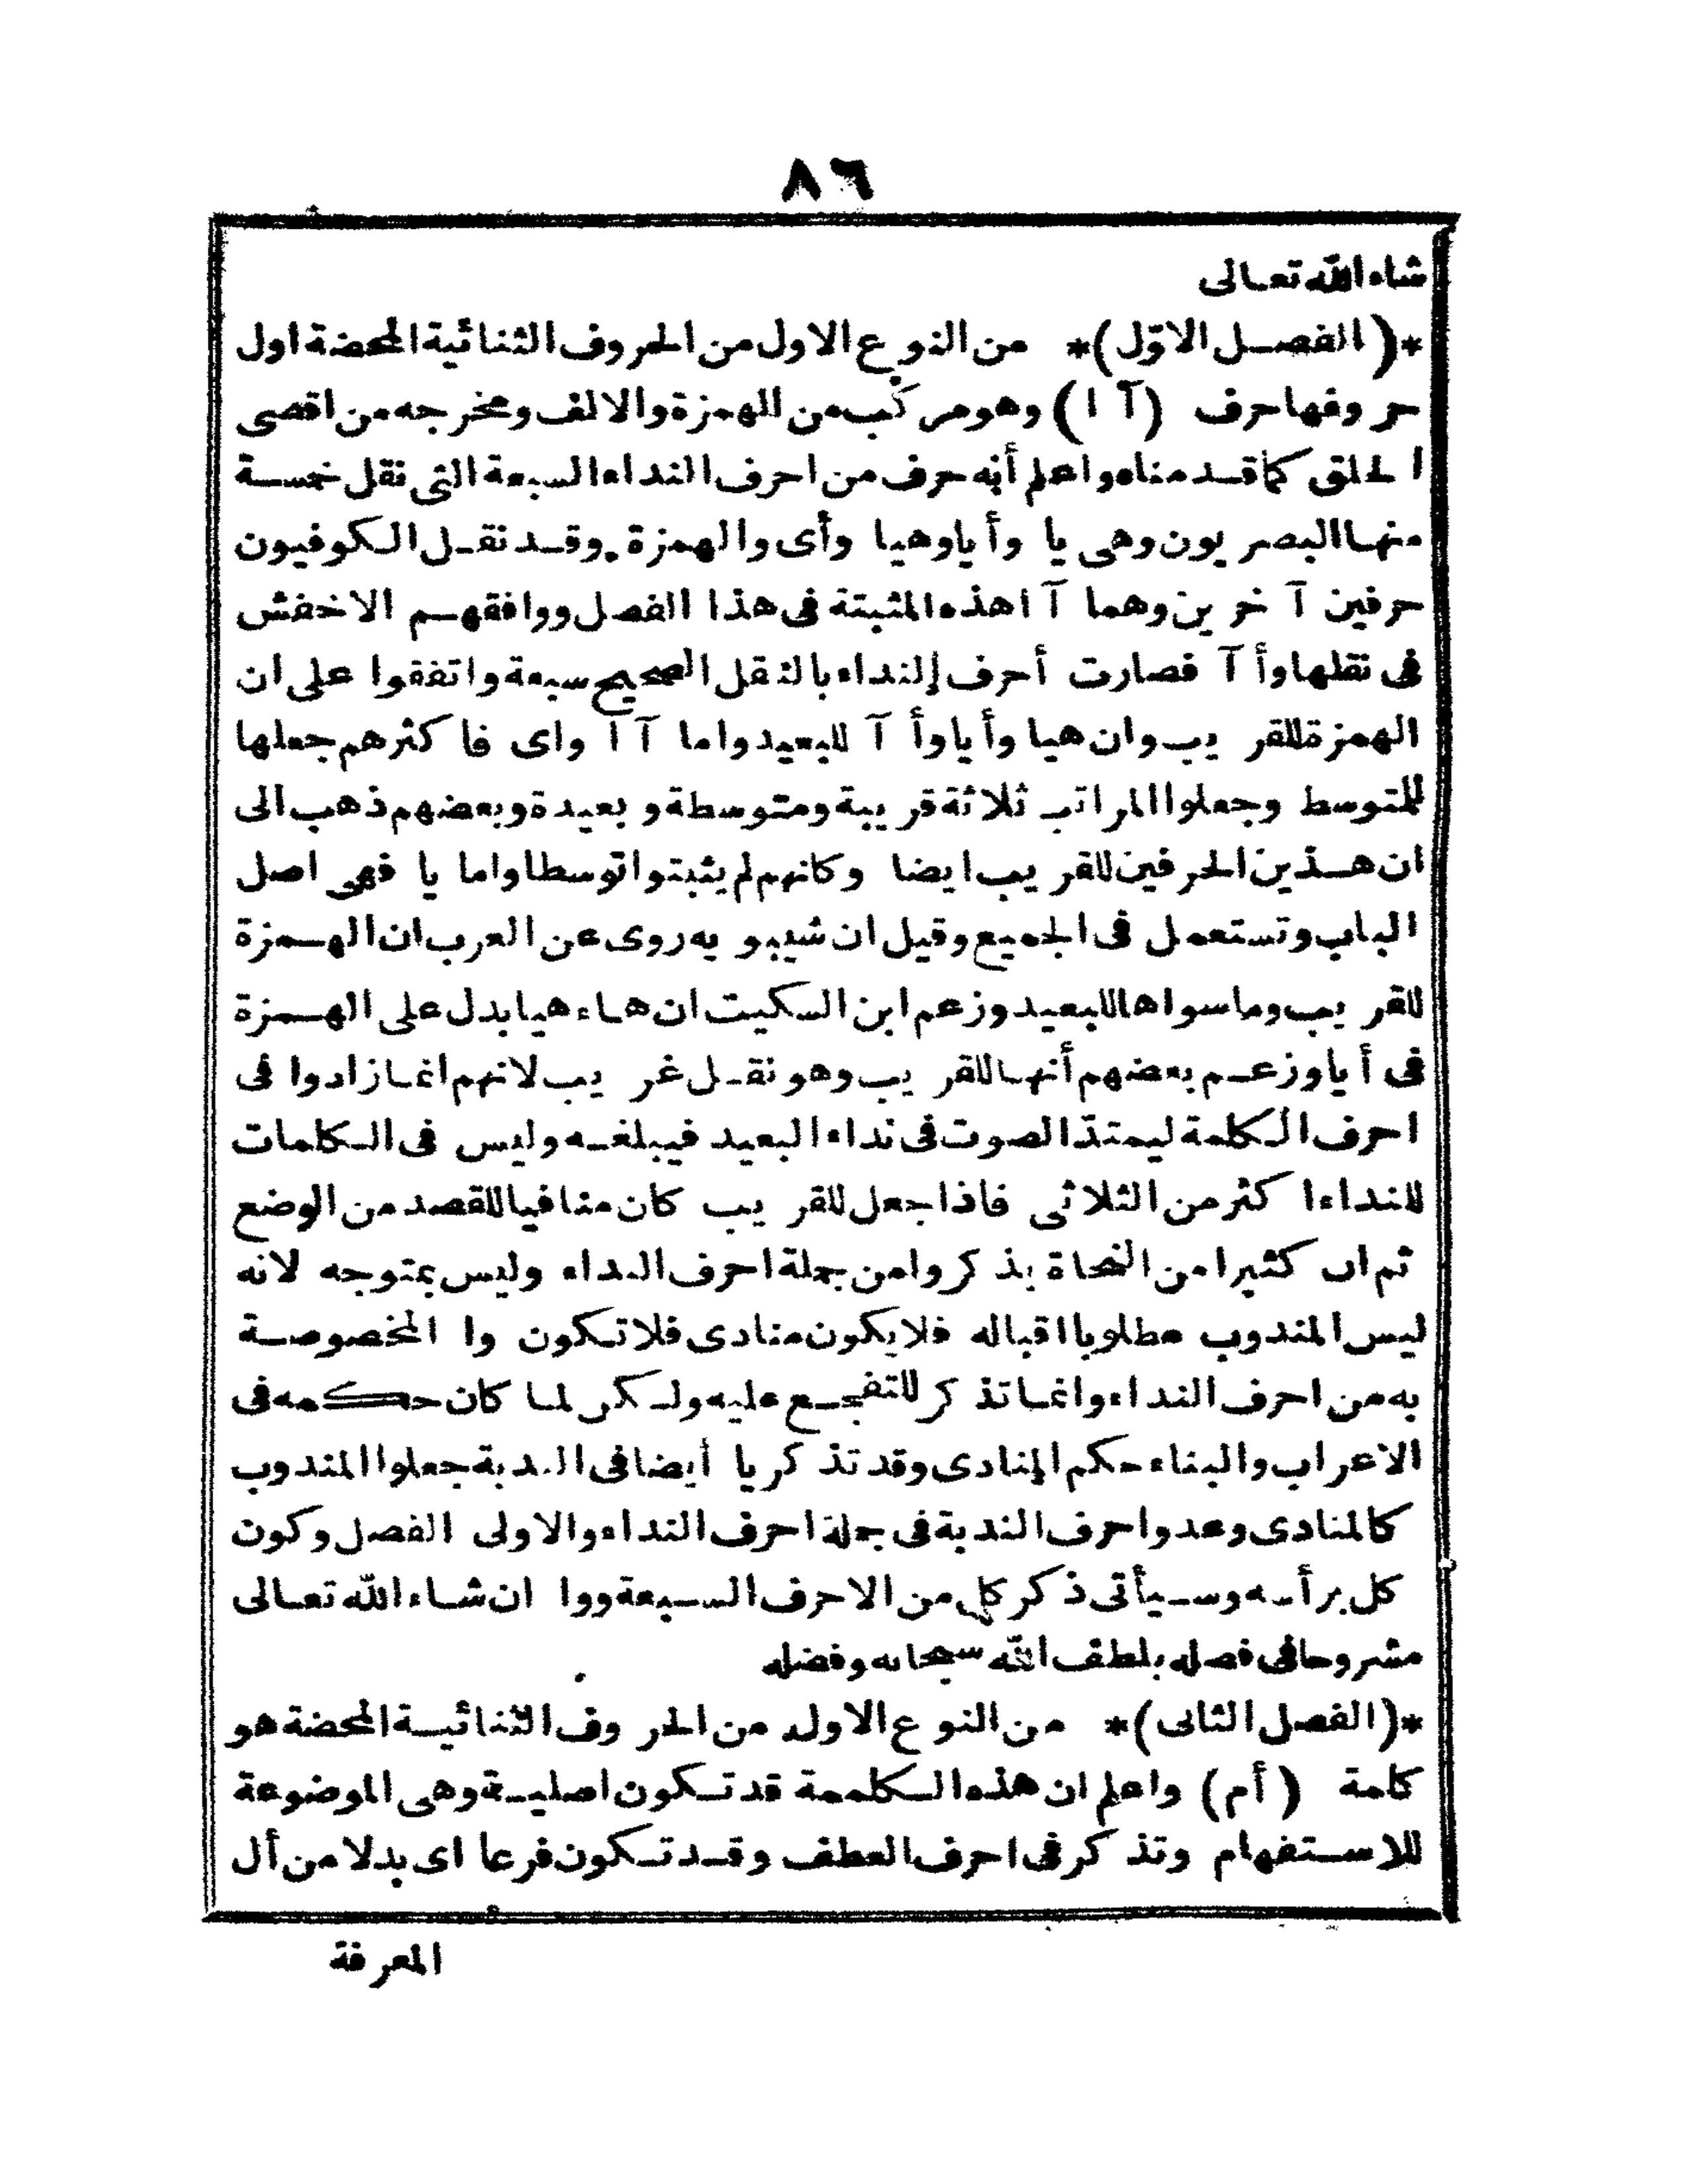 ٨٦
شاء الله تعالى
*(الفصل الاوّل)* من النوع الاول من الحروف الثنائية المحضة اول
حروفها حرف (آ ا) وهو مركب من الهمزة والالف ومخرجه من اقصى
الحلق كما قدمناه واعلم أنه حرف من احرف النداء السبعة التى نقل خمسة
منها البصريون وهى يا وأيا وهيا وأى والهمزة وقد نقل الكوفيون
حرفين آخرين وهما آ ا هذه المثبتة فى هذا الفصل ووافقهم الاخفش
فى نقلها وأ آ فصارت أحرف النداء بالنقل الصحيح سبعة واتفقوا على ان
الهمزة للقريب وان هيا وأيا وأ آ للبعيد واما آ ا واى فاكثرهم جعلها
للمتوسط وجعلوا المراتب ثلاثة قريبة ومتوسطة وبعيدة وبعضهم ذهب الى
ان هذين الحرفين للقريب ايضا وكانهم لم يثبتوا توسطا واما يا فهى اصل
الباب وتستعمل فى الجميع وقيل ان شيبويه روى عن العرب ان الهمزة
للقريب وما سواها للبعيد وزعم ابن السكيت ان هاء هيا بدل على الهمزة
فى أيا وزعم بعضهم أنها للقريب وهو نقل غريب لانهم انما زادوا فى
احرف الكلمة ليمتد الصوت فى نداء البعيد فيبلغه وليس فى الكلمات
للنداء اكثر من الثلاثى فاذا جعل للقريب كان منافيا للقصد من الوضع
ثم ان كثيرا من النحاة يذكر وا من جملة احرف النداء وليس بمتوجه لانه
ليس المندوب مطلوبا اقباله فلا يكون منادى فلا تكون وا المخصوصة
به من احرف النداء وانما تذكر للتفجع عليه ولكن لما كان حكمه فى
الاعراب والبناء حكم المنادى وقد تذكر يا أيضا فى الندبة جعلوا المندوب
كالمنادى وعدوا حرف الندبة فى جملة احرف النداء والاولى الفصل وكون
كل برأسه وسيأتى ذكر كل من الاحرف السبعة ووا ان شاء الله تعالى
مشروحا فى فصله بلطف الله سبحانه وفضله
*(الفصل الثانى)* من النوع الاول من الحروف الثنائية المحضة هو
كلمة (أم) واعلم ان هذه الكلممة قد تكون اصلية وهى الموضوعة
للاستفهام وتذكر فى احرف العطف وقد تكون فرعا اى بدلا من أل
المعرفة